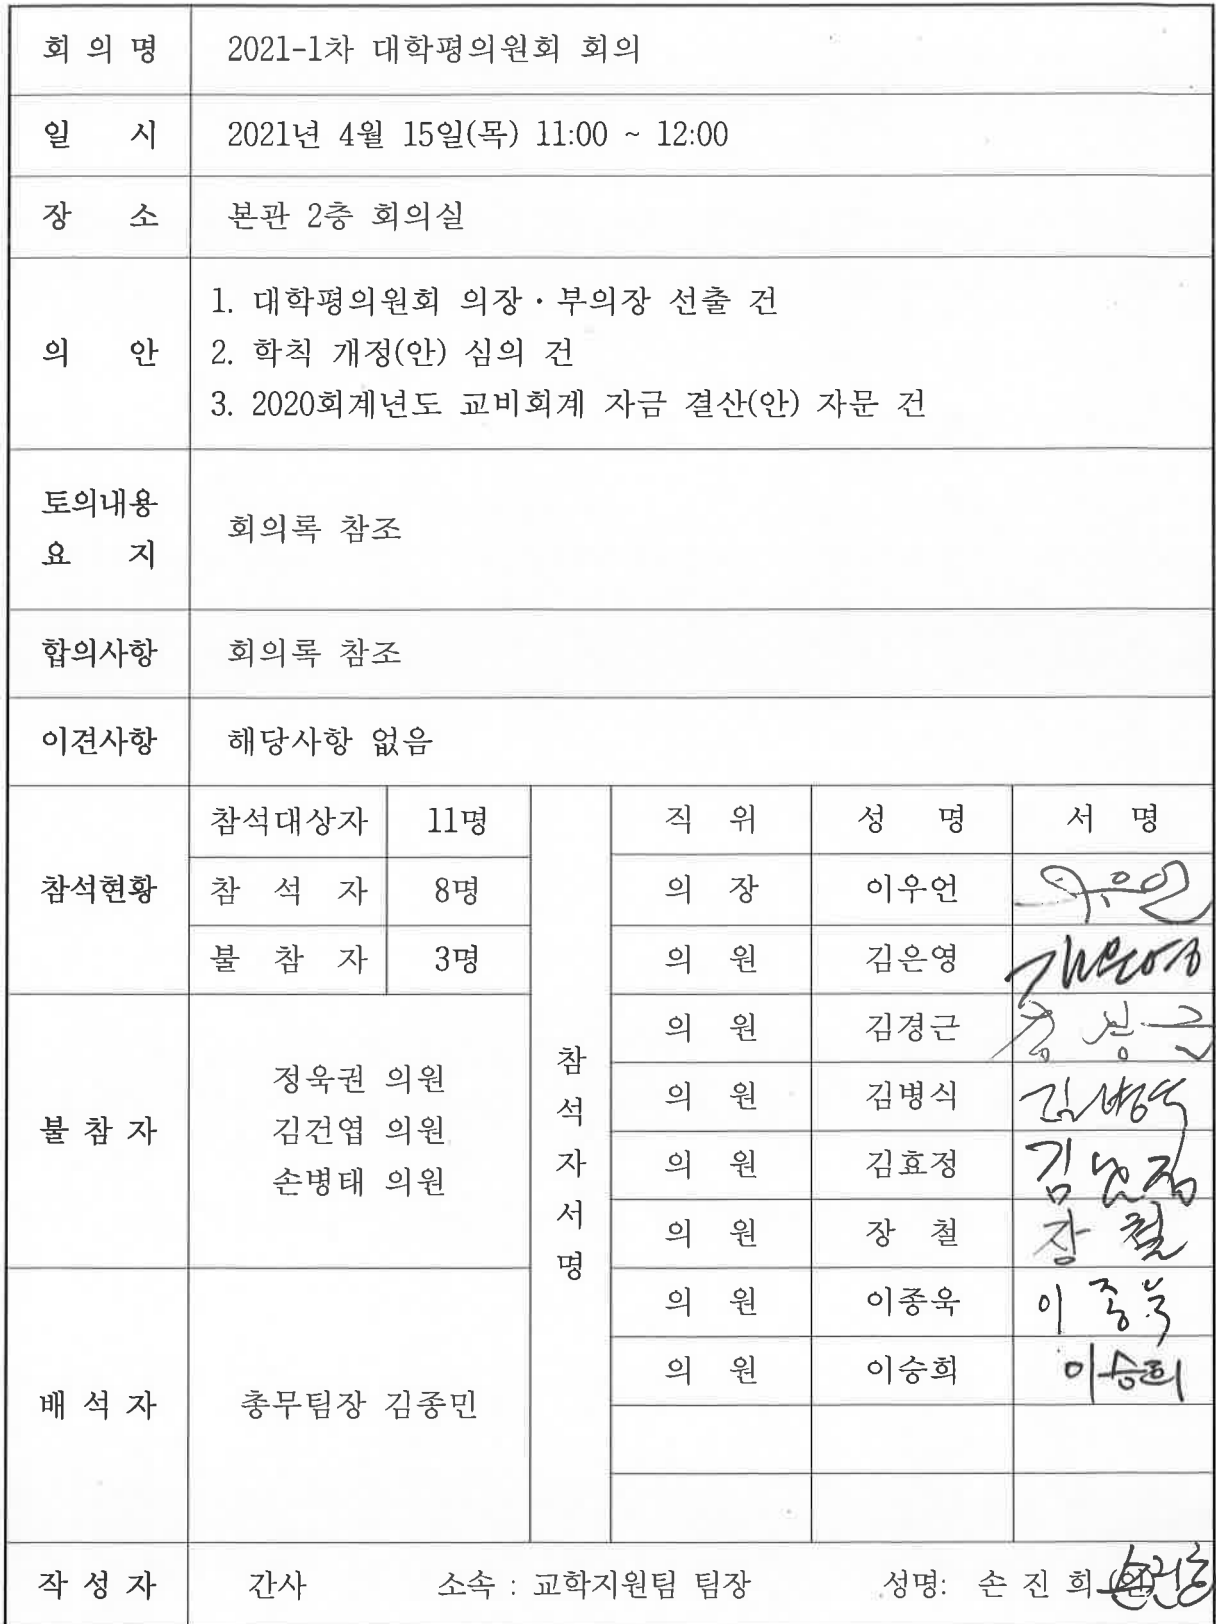 회 의 명 2021-1차 대학평의원회 회의
일 시 2021년 4월 15일(목) 11:00 ~ 12:00
장 소 본관 2층 회의실
의 안
1. 대학평의원회 의장·부의장 선출 건
2. 학칙 개정(안) 심의 건
3. 2020회계년도 교비회계 자금 결산(안) 자문 건
토의내용
요 지
회의록 참조
합의사항 회의록 참조
이견사항 해당사항 없음
참석현황
참석대상자 11명
참 석 자 8명
불 참 자 3명
불 참 자
정욱권 의원
김건엽 의원
손병태 의원
배 석 자 총무팀장 김종민
참
석
자
서
명
직 위 성 명 서 명
의 장 이우언
의 원 김은영
의 원 김경근
의 원 김병식 김병식
의 원 김효정
의 원 장 철 장 철
의 원 이종욱 이종욱
의 원 이승희 이승희
작 성 자 간사 소속 : 교학지원팀 팀장 성명: 손 진 희 (인)